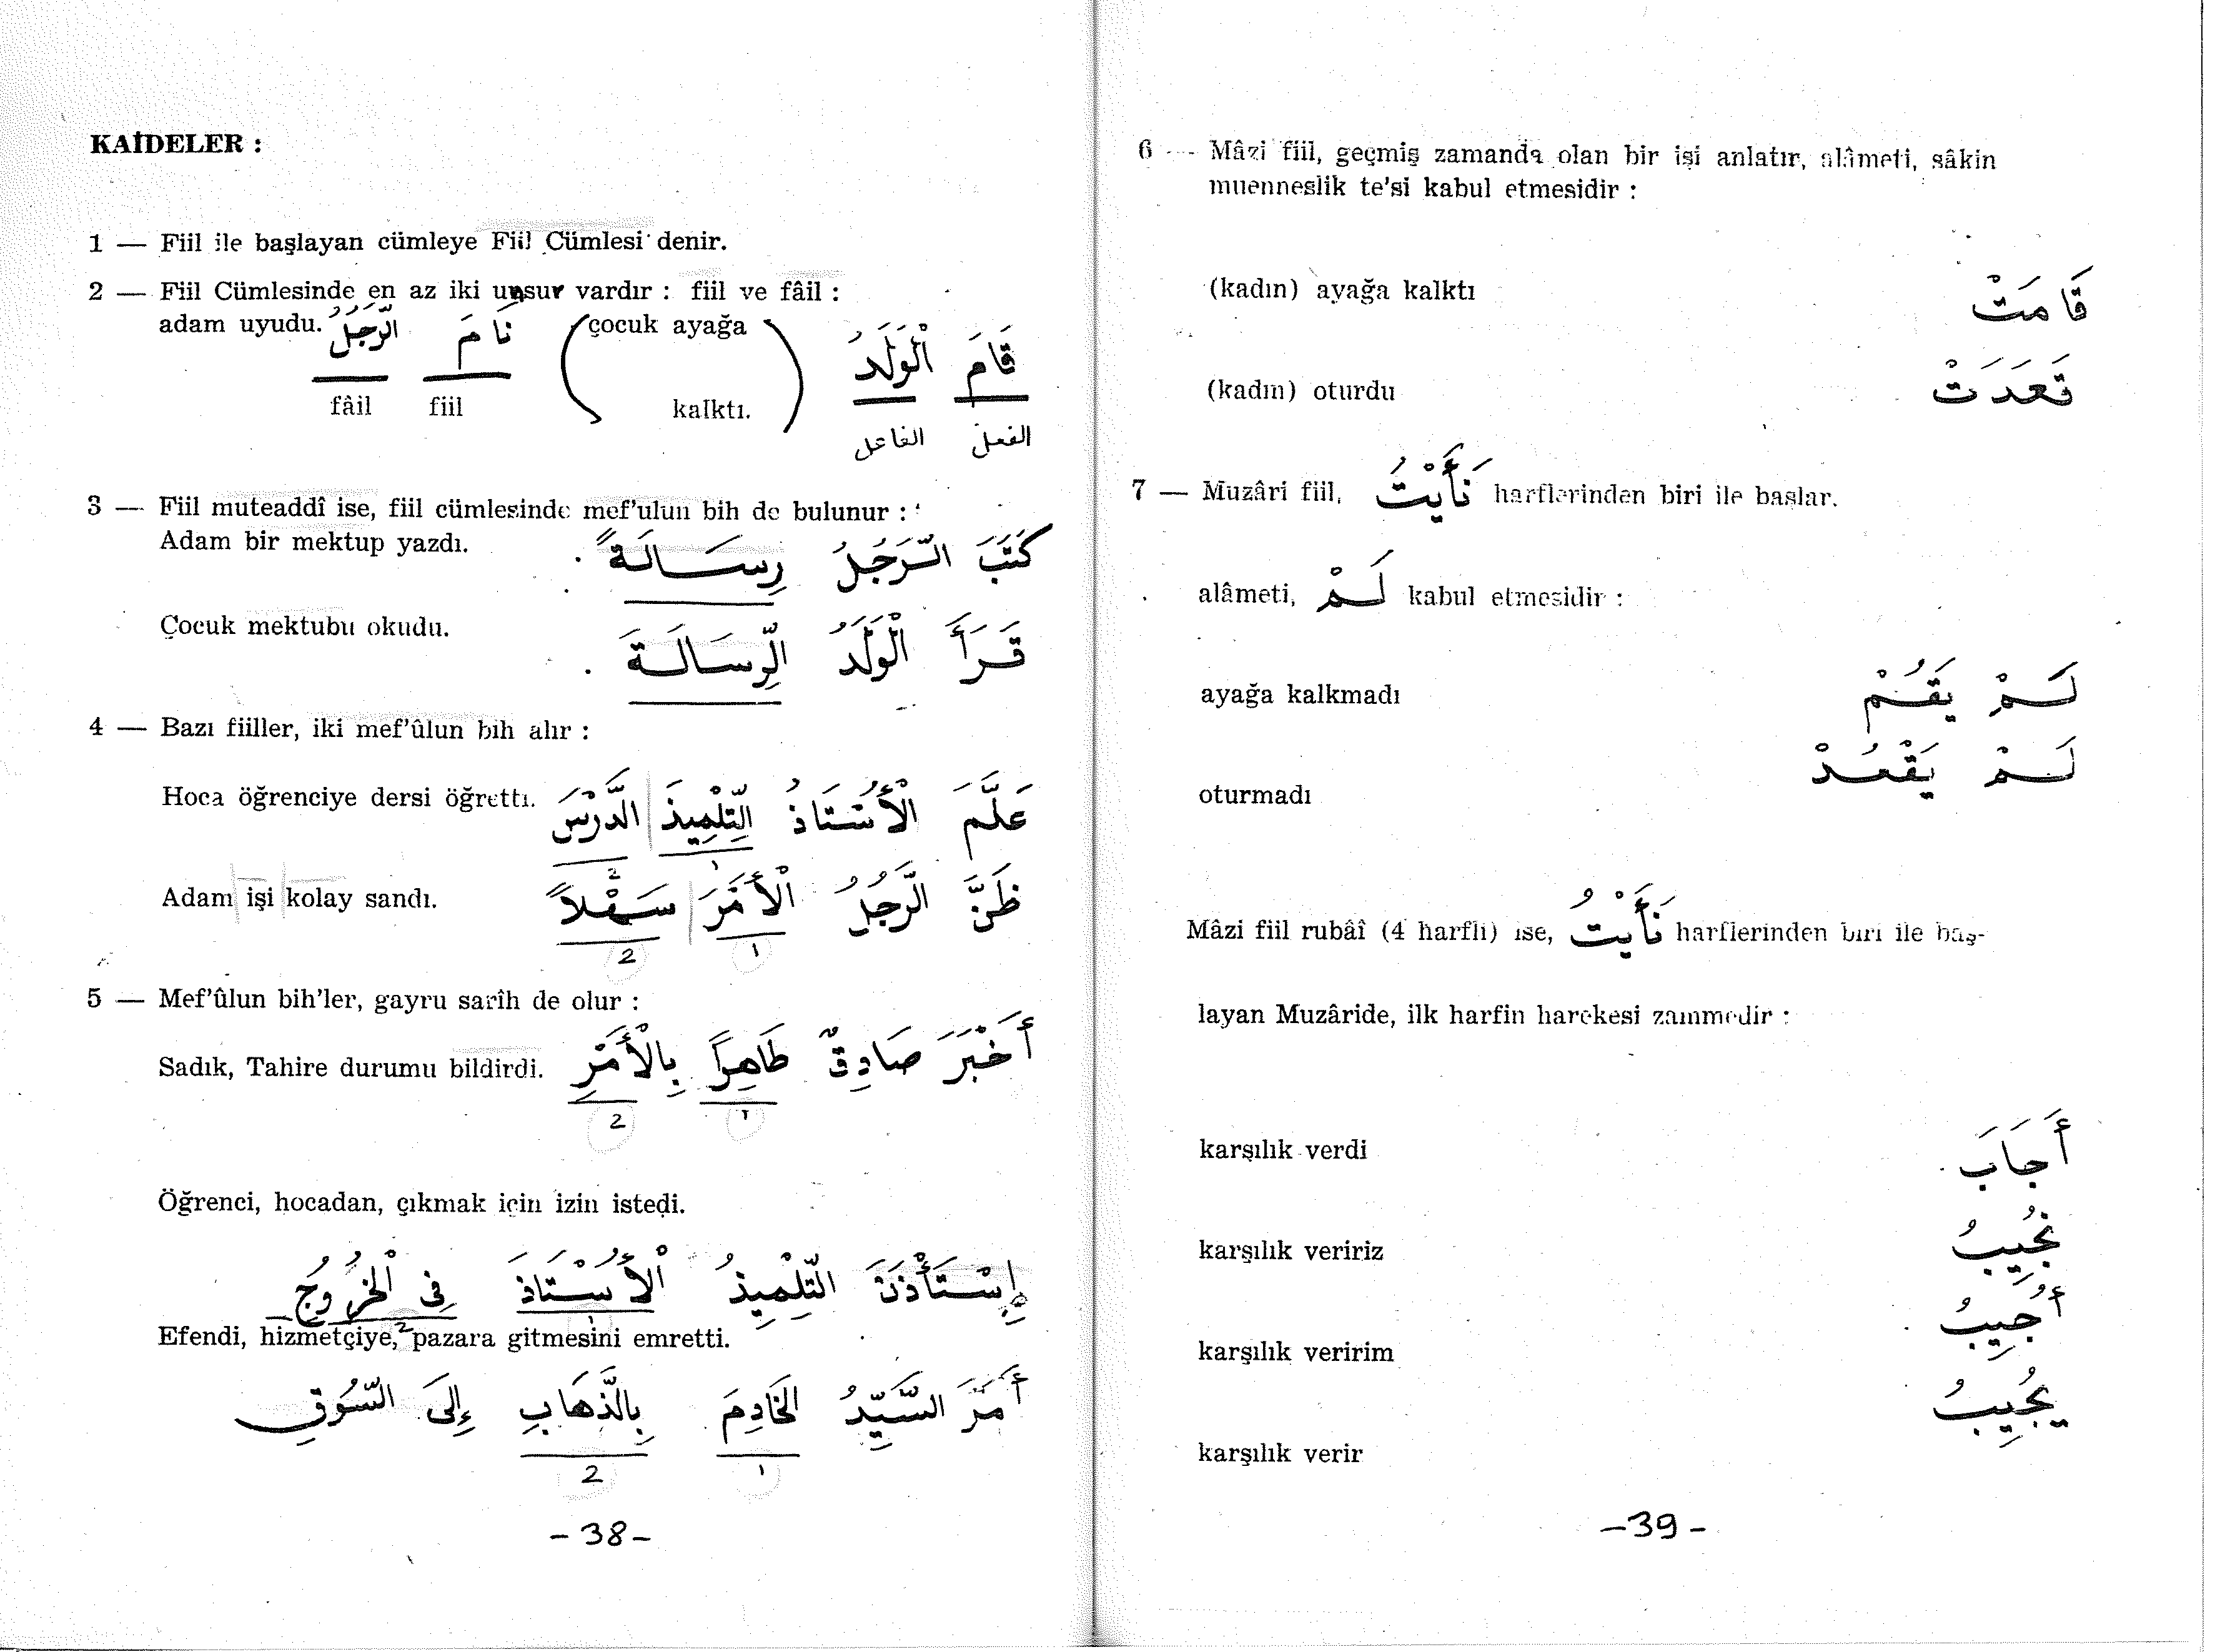 KAİDELER :
1 — Fiil ile başlayan cümleye Fiil Cümlesi denir.
2 — Fiil Cümlesinde en az iki unsur vardır : fiil ve fâil :
adam uyudu. نَامَ الرَّجُلُ (çocuk ayağa kalktı.) قَامَ الْوَلَدُ
fâil fiil الفعل الفاعل
3 — Fiil muteaddî ise, fiil cümlesinde mef'ulun bih de bulunur :
Adam bir mektup yazdı. كَتَبَ الرَّجُلُ رِسَالَةً .
Çocuk mektubu okudu. قَرَأَ الْوَلَدُ الرِّسَالَةَ .
4 — Bazı fiiller, iki mef'ûlun bih alır :
Hoca öğrenciye dersi öğretti. عَلَّمَ الْأُسْتَاذُ التِّلْمِيذَ الدَّرْسَ
١ 2
Adam işi kolay sandı. ظَنَّ الرَّجُلُ الْأَمْرَ سَهْلاً
١ 2
5 — Mef'ûlun bih'ler, gayru sarîh de olur :
Sadık, Tahire durumu bildirdi. أَخْبَرَ صَادِقٌ طَاهِراً بِالْأَمْرِ
١ 2
Öğrenci, hocadan, çıkmak için izin istedi.
إِسْتَأْذَنَ التِّلْمِيذُ الْأُسْتَاذَ فِي الْخُرُوجِ
١ 2
Efendi, hizmetçiye, pazara gitmesini emretti.
أَمَرَ السَّيِّدُ الْخَادِمَ بِالذَّهَابِ إِلَى السُّوقِ
١ 2
-38-
6 — Mâzi fiil, geçmiş zamanda olan bir işi anlatır, alâmeti, sâkin
muenneslik te'si kabul etmesidir :
(kadın) ayağa kalktı قَامَتْ
(kadın) oturdu قَعَدَتْ
7 — Muzâri fiil, نَأَيْتُ harflerinden biri ile başlar.
alâmeti, لَمْ kabul etmesidir :
ayağa kalkmadı لَمْ يَقُمْ
oturmadı لَمْ يَقْعُدْ
Mâzi fiil rubâî (4 harfli) ise, نَأَيْتُ harflerinden biri ile baş-
layan Muzâride, ilk harfin harekesi zammedir :
karşılık verdi أَجَابَ
karşılık veririz نُجِيبُ
karşılık veririm أُجِيبُ
karşılık verir يُجِيبُ
-39-